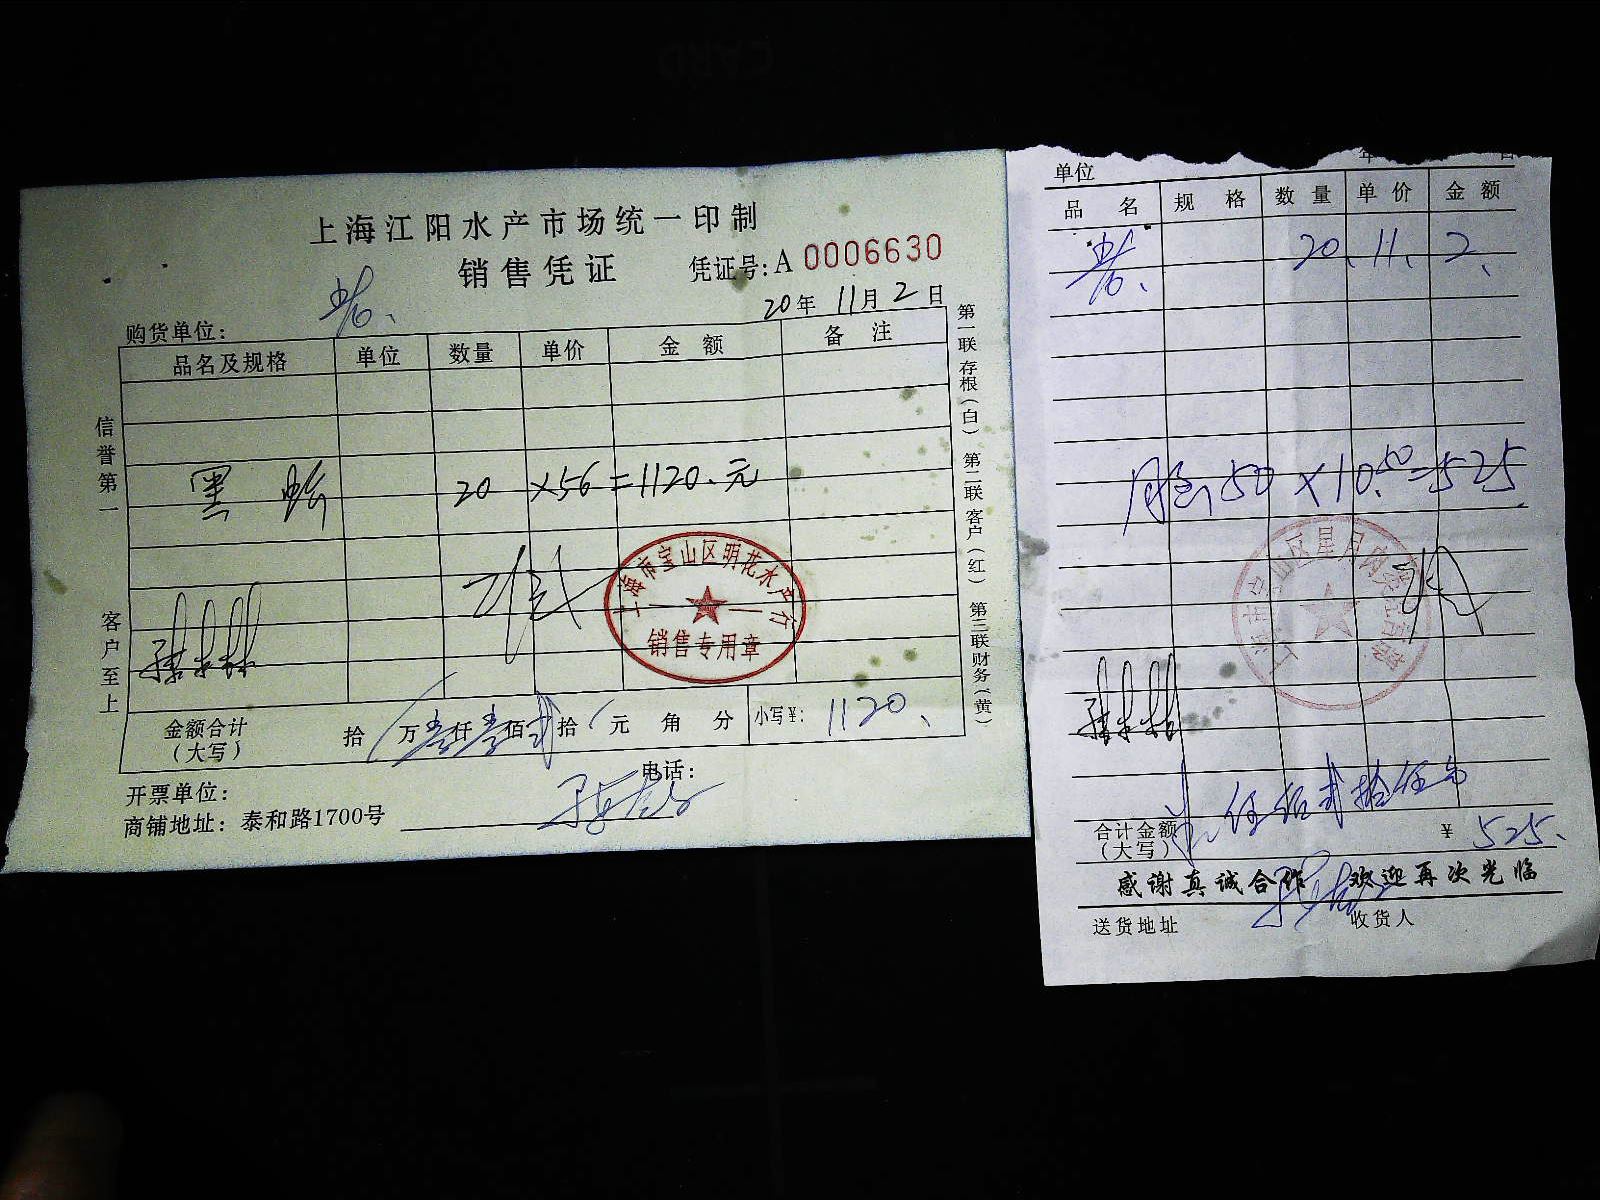 上海江阳水产市场统一印制
销售凭证
凭证号:A 0006630
20年 11月 2日
购货单位:
品名及规格 单位 数量 单价 金额 备注
黑 20 ×56=1120.元
上海市宝山区明花水产行
销售专用章
金额合计(大写) 拾 万壹仟壹佰贰拾 元 角 分 小写¥: 1120.
开票单位:
电话:
商铺地址: 泰和路1700号
信誉第一
客户至上
第一联存根(白) 第二联客户(红) 第三联财务(黄)
单位 年 日
品名 规格 数量 单价 金额
20.11.2.
50×10.50=525
合计金额(大写) 伍佰贰拾伍 ¥ 525.
感谢真诚合作 欢迎再次光临
送货地址 收货人